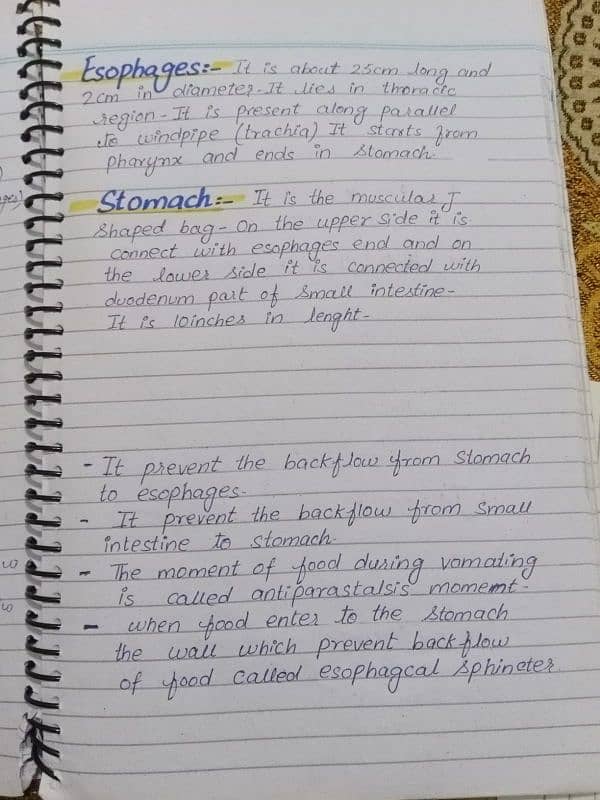 Esophages:- It is about 25cm long and
2cm in diameter- It lies in thoracic
region- It is present along parallel
to windpipe (trachia) It starts from
pharynx and ends in stomach-
Stomach:- It is the muscular J
Shaped bag- On the upper side it is
connect with esophages end and on
the lower side it is connected with
duodenum part of small intestine-
It is 10inches in lenght-
- It prevent the backflow from stomach
to esophages-
- It prevent the backflow from small
intestine to stomach-
- The moment of food during vomating
is called antiparastalsis momemt-
- when food enter to the stomach
the wall which prevent backflow
of food called esophagcal sphincter